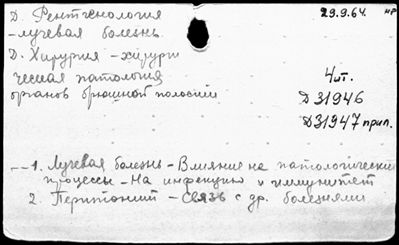 Д. Рентгенология 29.9.64. нр
-лучевая болезнь.
Д. Хирургия - хирурги
ческая патология 4 шт.
органов брюшной полости Д31946
Д31947 прил.
--1. Лучевая болезнь - Влияние на патологические
процессы - На инфекцию и иммунитет
2. Перитоний - Связь с др. болезнями